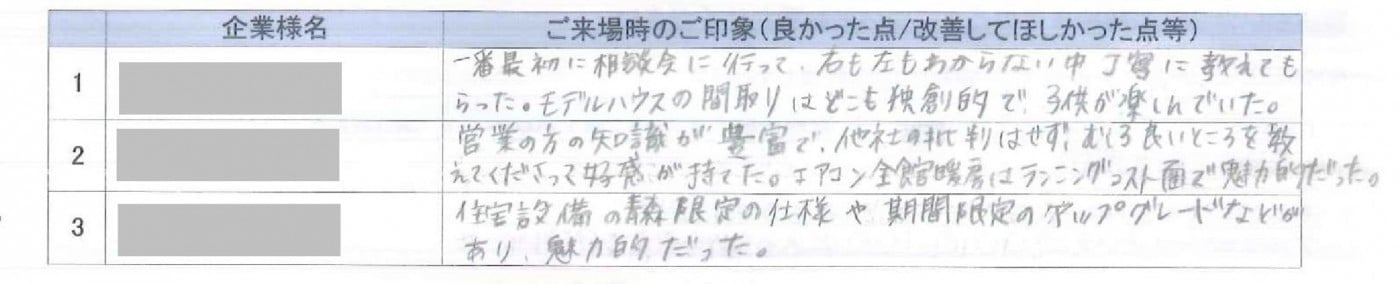 企業様名 ご来場時のご印象（良かった点/改善してほしかった点等）
1 一番最初に相談会に行って、右も左もわからない中丁寧に教えても
らった。モデルハウスの間取りはどこも独創的で、子供が楽しんでいた。
2 営業の方の知識が豊富で、他社の批判はせず、むしろ良いところを教
えてくださって好感が持てた。エアコン全館暖房はランニングコスト面で魅力的だった。
3 住宅設備の青森限定の仕様や期間限定のアップグレードなどが
あり、魅力的だった。